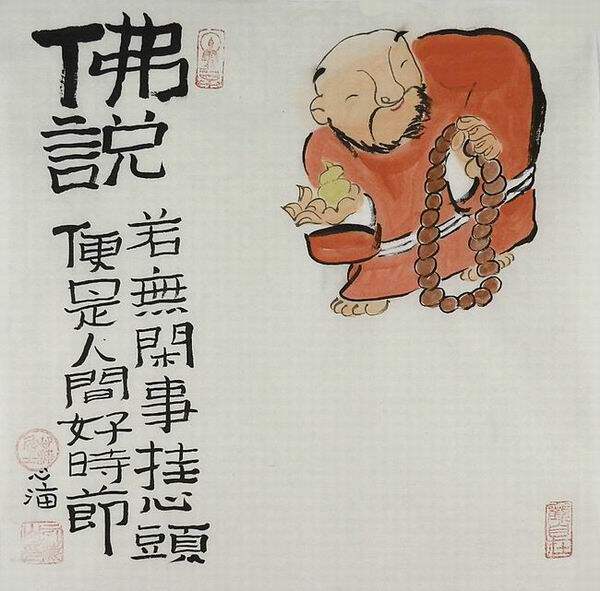 佛說
若無閑事挂心頭
便是人間好時節
心海